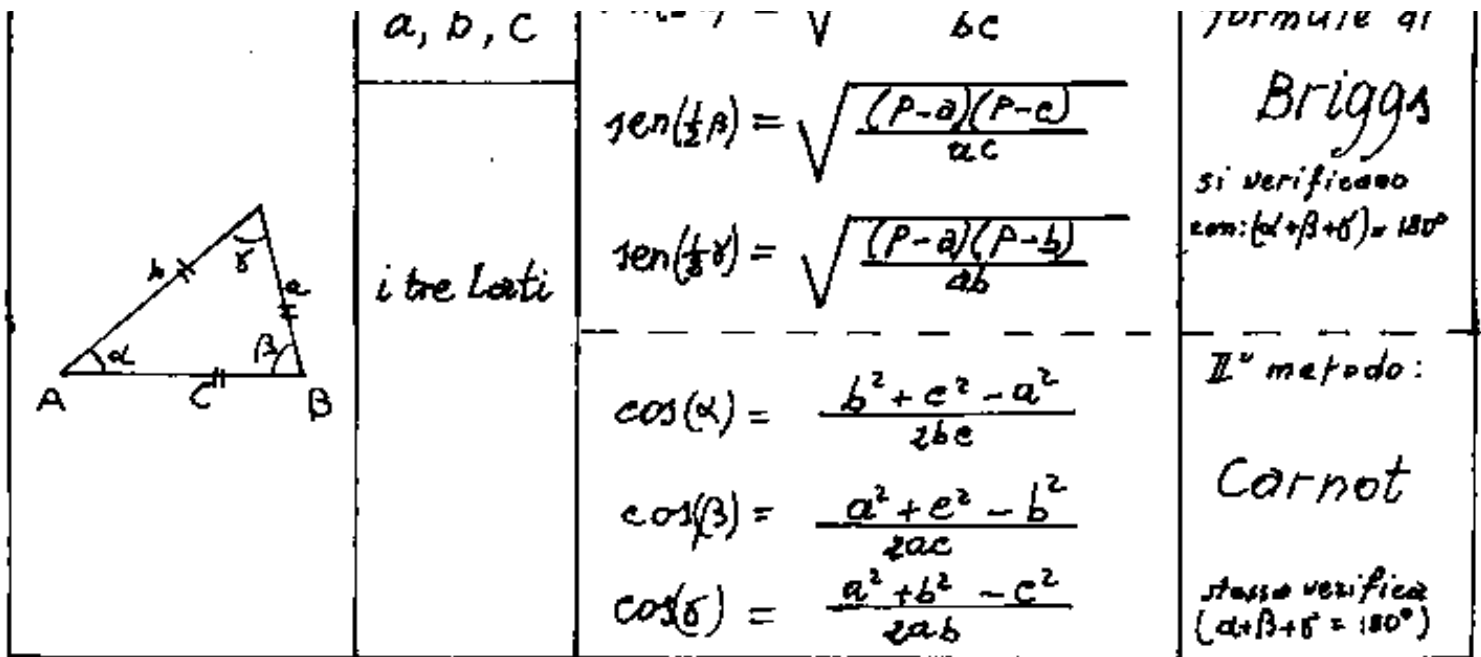 b
γ
a
α
β
A
C
B
a, b, c
i tre lati
bc
sen(½β) = √((P-a)(P-c) / ac)
sen(½γ) = √((P-a)(P-b) / ab)
cos(α) = (b² + c² - a²) / 2bc
cos(β) = (a² + c² - b²) / 2ac
cos(γ) = (a² + b² - c²) / 2ab
formule di
Briggs
si verificano
con: (α+β+γ) = 180°
II° metodo:
Carnot
stessa verifica
(α+β+γ = 180°)